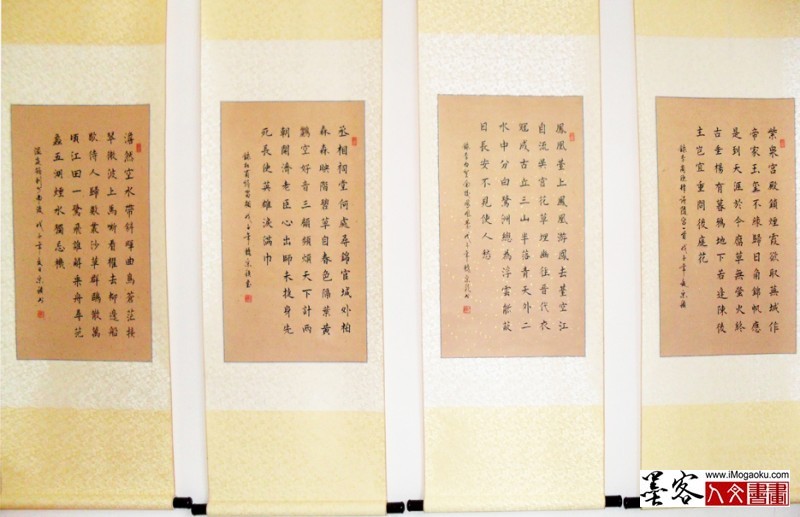 紫泉宮殿鎖煙霞欲取蕪城作
帝家玉璽不緣歸日角錦帆應
是到天涯於今腐草無螢火終
古垂楊有暮鴉地下若逢陳後
主豈宜重問後庭花
鳳凰臺上鳳凰游鳳去臺空江
自流吳宮花草埋幽徑晉代衣
冠成古丘三山半落青天外二
水中分白鷺洲總為浮雲能蔽
日長安不見使人愁
丞相祠堂何處尋錦官城外柏
森森映階碧草自春色隔葉黃
鸝空好音三顧頻煩天下計兩
朝開濟老臣心出師未捷身先
死長使英雄淚滿巾
澹然空水帶斜暉曲島蒼茫接
翠微波上馬嘶看櫂去柳邊船
歇待人歸數叢沙草群鷗散萬
頃江田一鷺飛誰解乘舟尋范
蠡五湖煙水獨忘機
墨客 www.iMogaoku.com
人文書畫